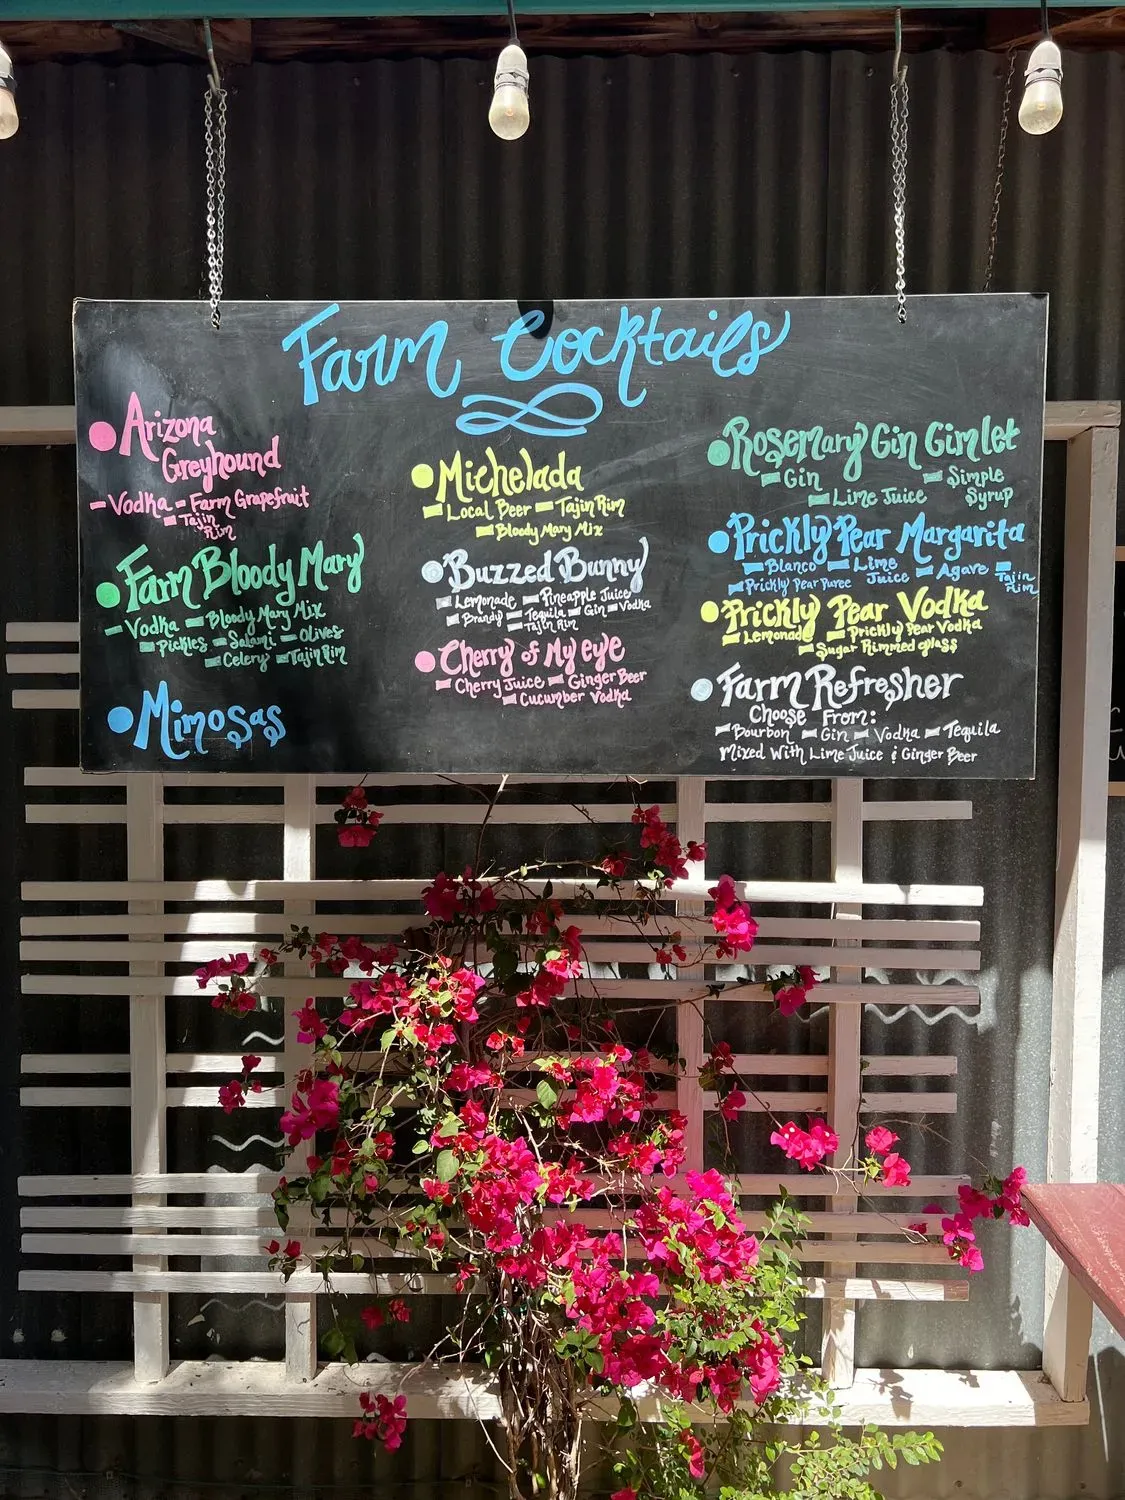 Farm Cocktails
Arizona
Greyhound
Vodka Farm Grapefruit
Tajin
Rim
Farm Bloody Mary
Vodka Bloody Mary Mix
Pickles Salami Olives
Celery Tajin Rim
Mimosas
Michelada
Local Beer Tajin Rim
Bloody Mary Mix
Buzzed Bunny
Lemonade Pineapple Juice
Brandy Tequila Gin Vodka
Tajin Rim
Cherry of My eye
Cherry Juice Ginger Beer
Cucumber Vodka
Rosemary Gin Gimlet
Gin Simple
Lime Juice Syrup
Prickly Pear Margarita
Blanco Lime Agave Tajin
Prickly Pear Puree Juice Rim
Prickly Pear Vodka
Lemonad Prickly Pear Vodka
Sugar Rimmed glass
Farm Refresher
Choose From:
Bourbon Gin Vodka Tequila
Mixed With Lime Juice & Ginger Beer